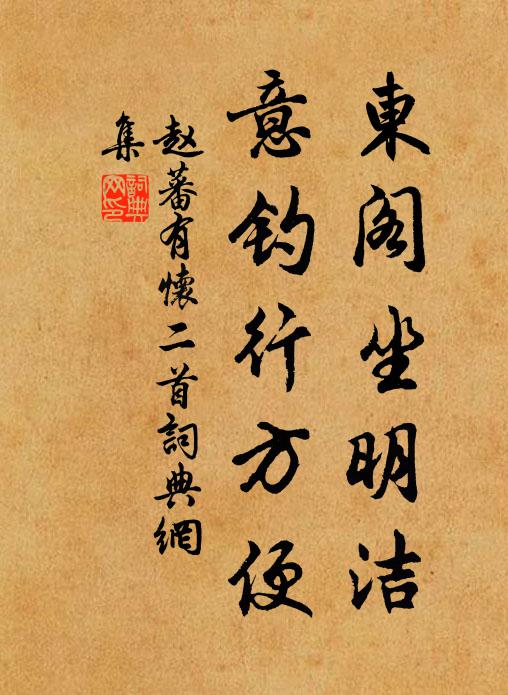 東阁坐明洁
意钓行方便
赵蕃有懷二首詞典網
集
詞典
网印